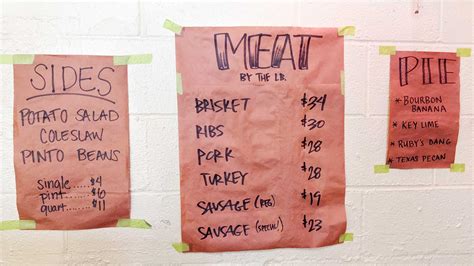 SIDES
POTATO SALAD
COLESLAW
PINTO BEANS
single......$4
pint......$6
quart......$11
MEAT
BY THE LB.
BRISKET $34
RIBS $30
PORK $28
TURKEY $28
SAUSAGE (REG) $19
SAUSAGE (SPECIAL) $23
PIE
* BOURBON
BANANA
* KEY LIME
* RUBY'S BANG
* TEXAS PECAN